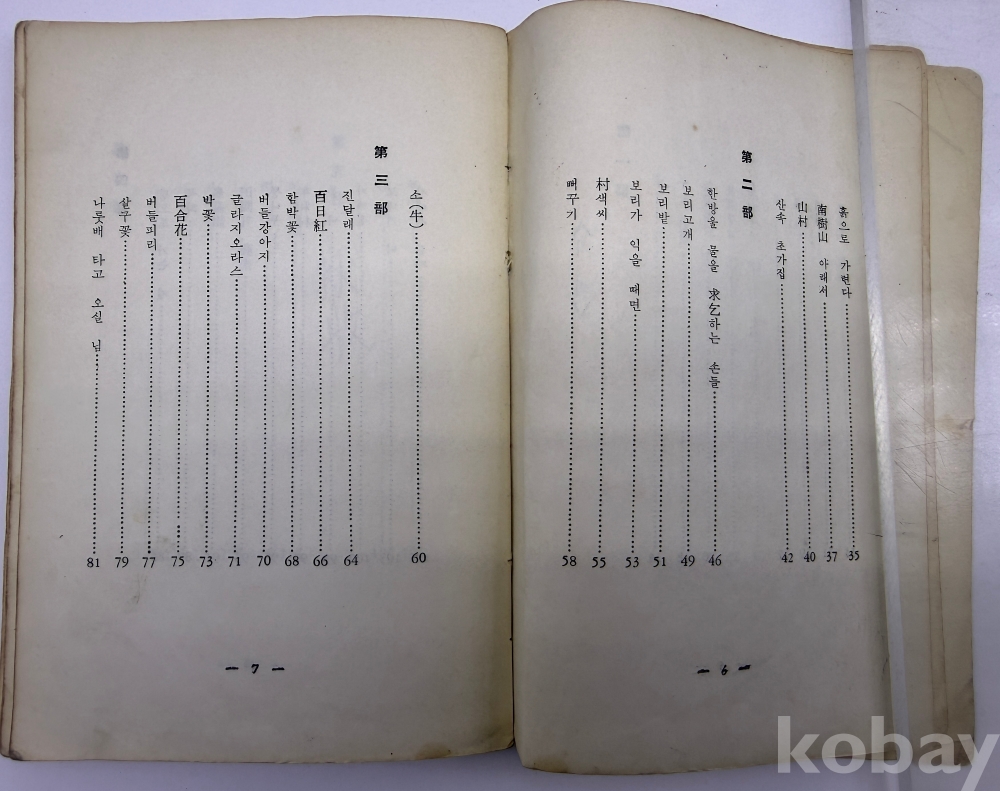 흙으로 가련다 35
南樹山 아래서 37
山村 40
산속 초가집 42
第二部
한방울 물을 求乞하는 손들 46
보리고개 49
보리밭 51
보리가 익을 때면 53
村색씨 55
뻐꾸기 58
— 6 —
소(牛) 60
第三部
진달래 64
百日紅 66
함박꽃 68
버들강아지 70
글라지오라스 71
박꽃 73
百合花 75
버들피리 77
살구꽃 79
나룻배 타고 오실 님 81
— 7 —
kobay